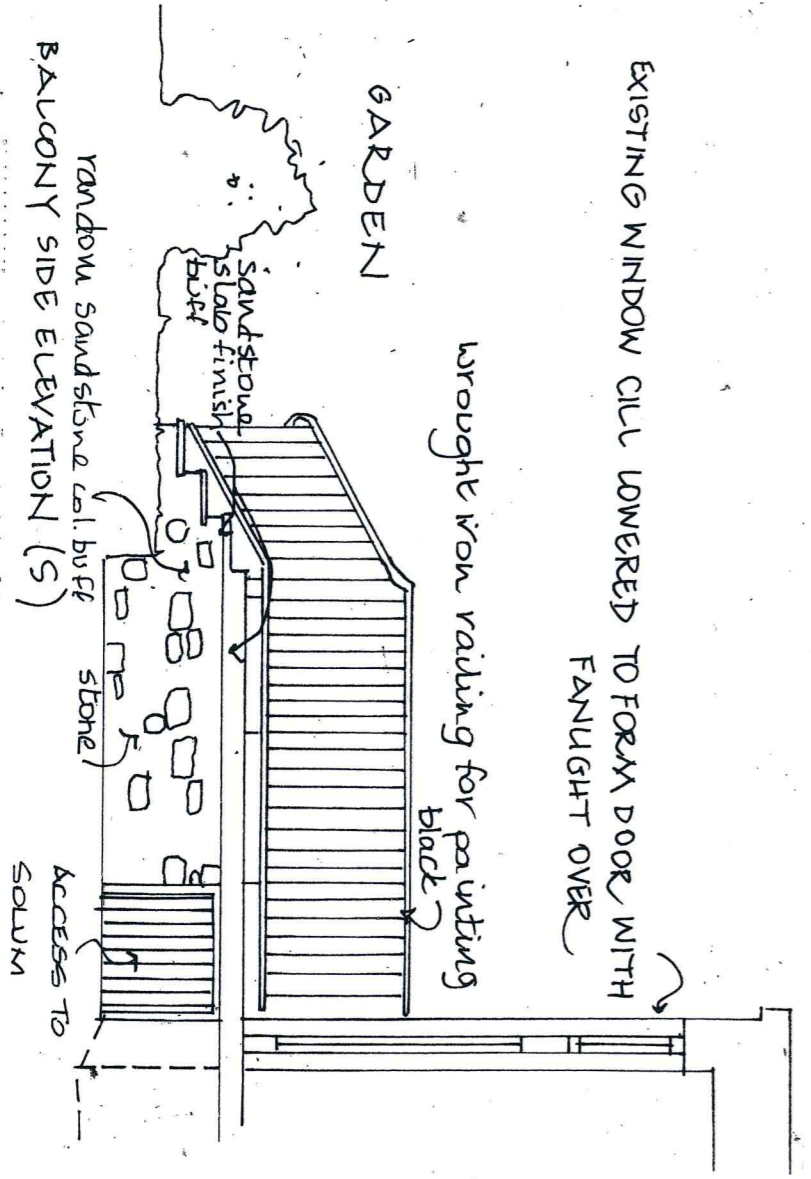 EXISTING WINDOW CILL LOWERED TO FORM DOOR WITH
FANLIGHT OVER
GARDEN
wrought iron railing for painting
black
sandstone
slab finish
buff
random sandstone col. buff
stone
ACCESS TO
SOLUM
BALCONY SIDE ELEVATION (S)